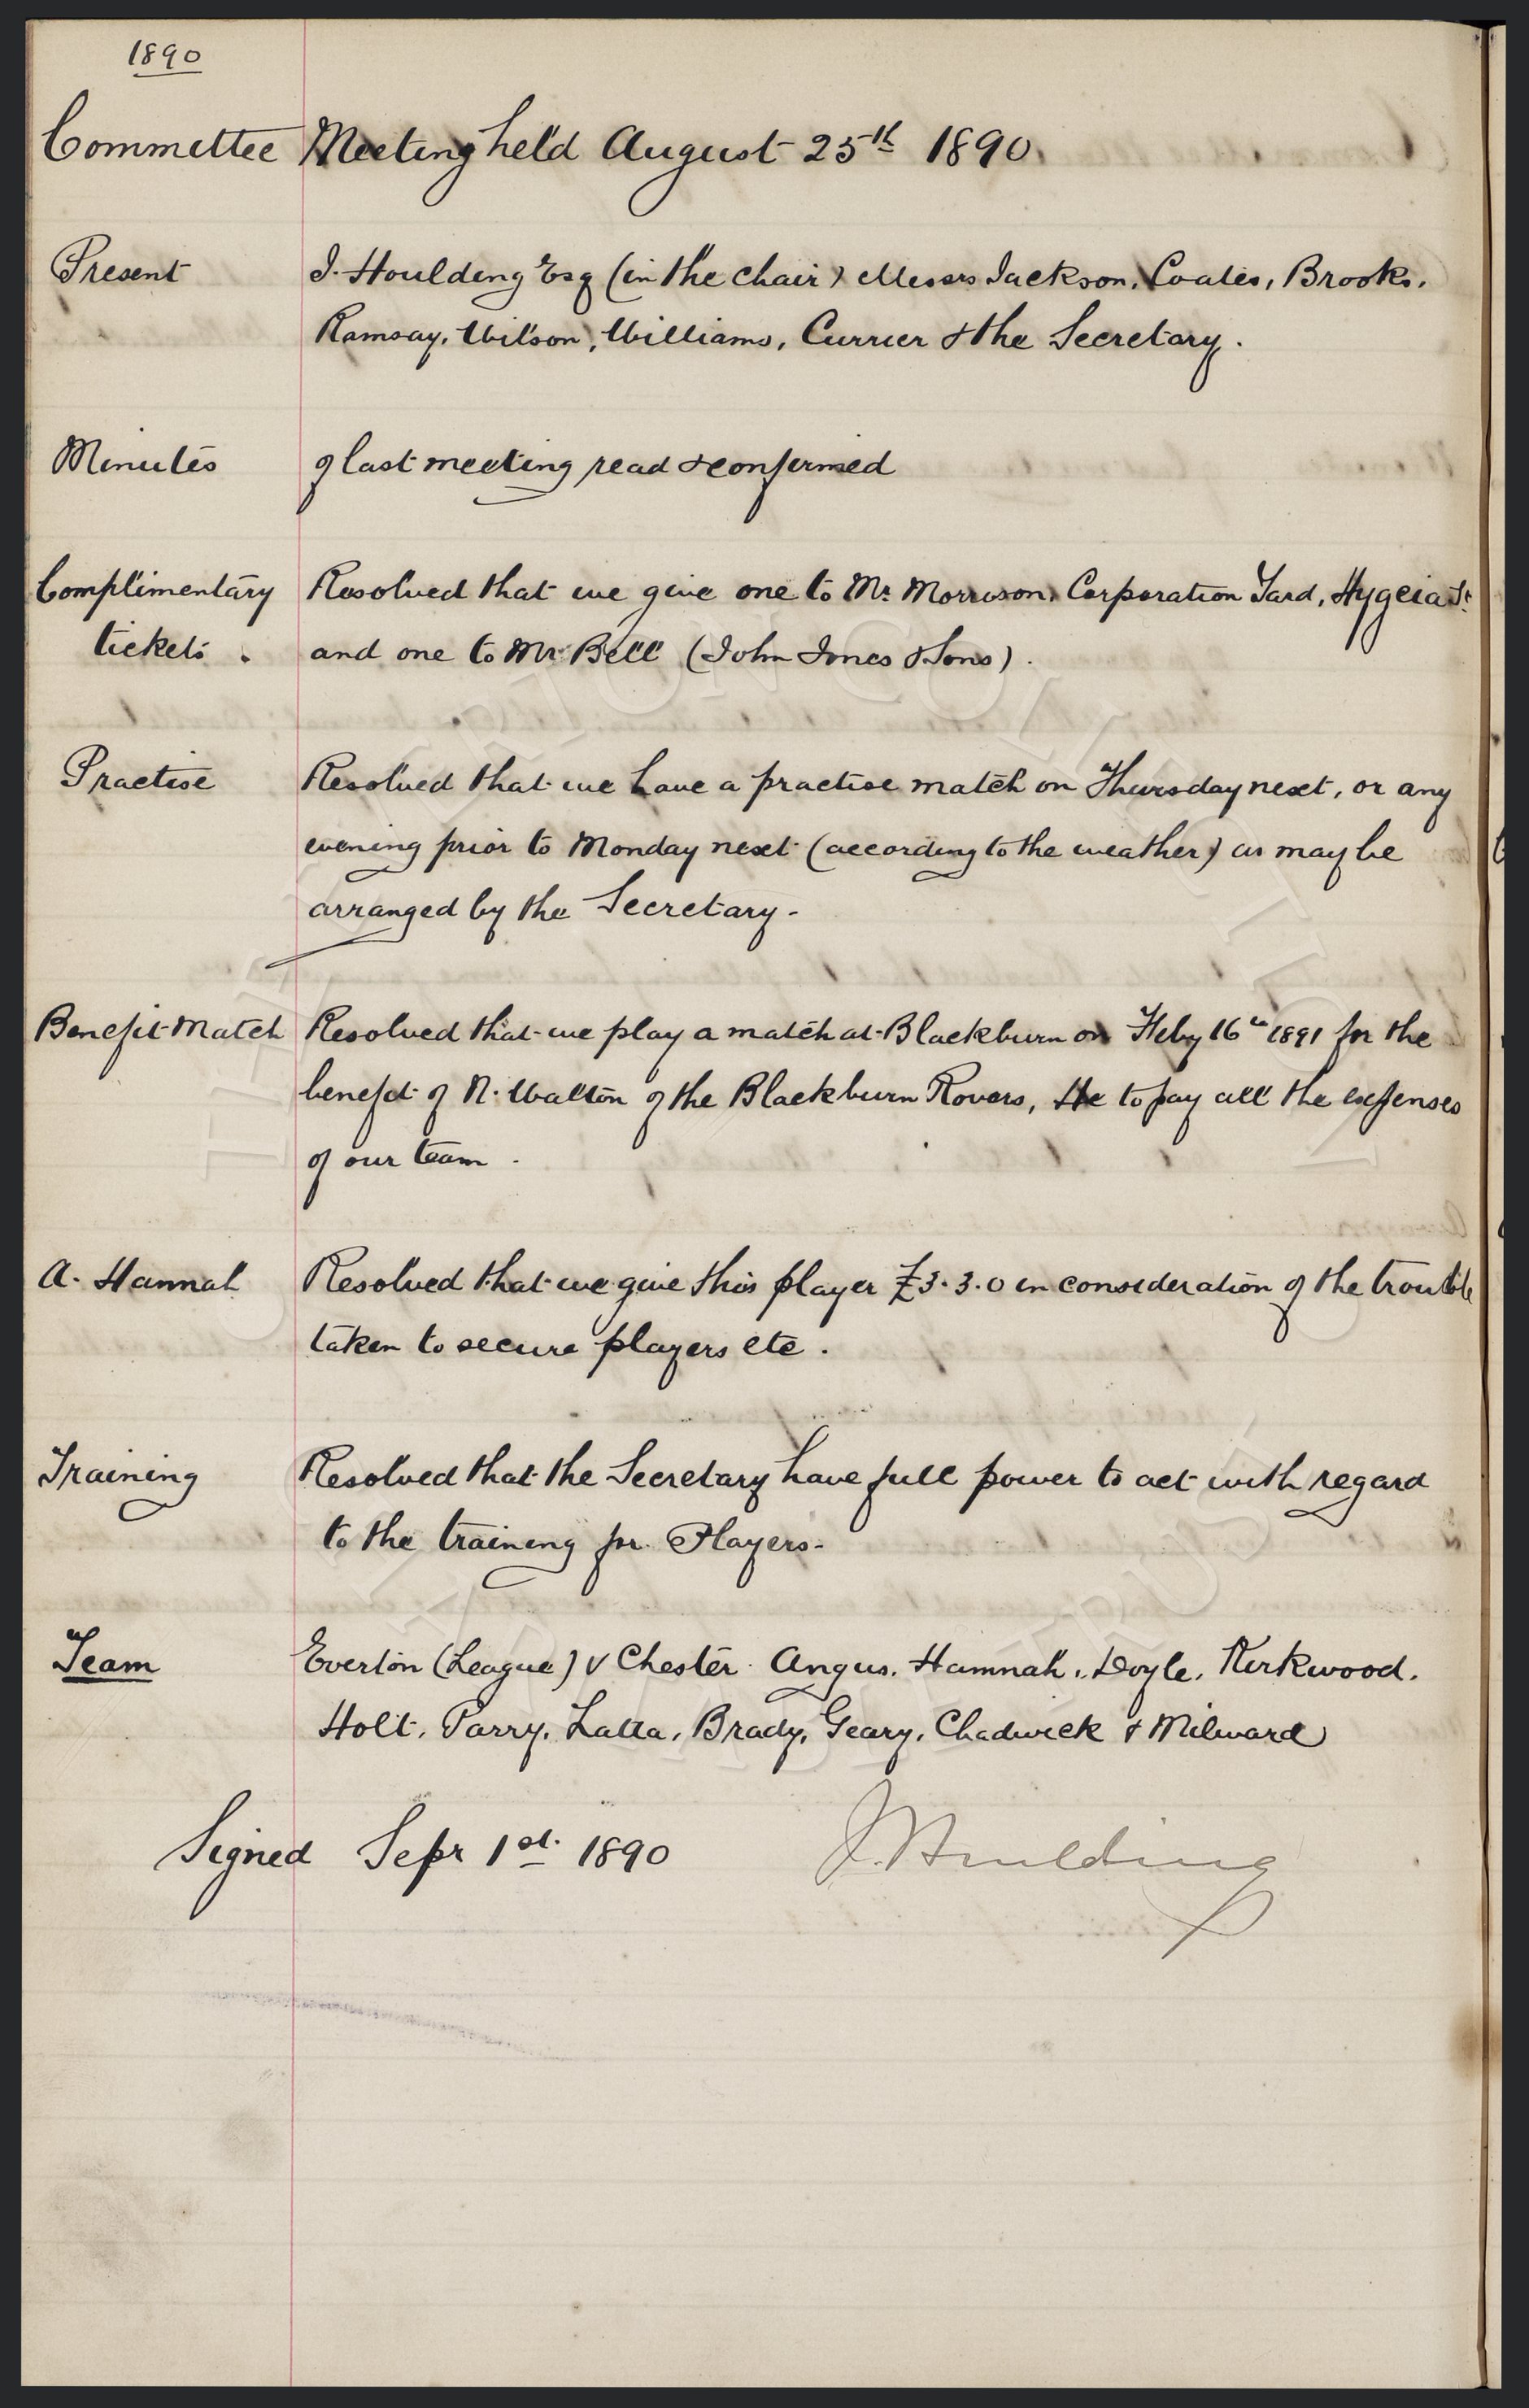 1890
Committee Meeting held August 25th 1890.
Present J. Houlding Esq (in the chair) Messrs Jackson, Coates, Brooks,
Ramsay, Wilson, Williams, Currier & the Secretary.
Minutes of last meeting read & confirmed
Complimentary Resolved that we give one to Mr. Morrison, Corporation Yard, Hygeia St.
tickets. and one to Mr Bell (John Jones & Sons).
Practise Resolved that we have a practise match on Thursday next, or any
evening prior to Monday next (according to the weather) as may be
arranged by the Secretary-
Benefit Match Resolved that we play a match at Blackburn on Feby 16th 1891 for the
benefit of N. Walton of the Blackburn Rovers, He to pay all the expenses
of our team.
A. Hannah Resolved that we give this player £3.3.0 in consideration of the trouble
taken to secure players etc.
Training Resolved that the Secretary have full power to act with regard
to the training for Players-
Team Everton (League) v Chester. Angus, Hannah, Doyle, Kirkwood,
Holt, Parry, Latta, Brady, Geary, Chadwick & Milward
Signed Sepr 1st. 1890 J. Houlding